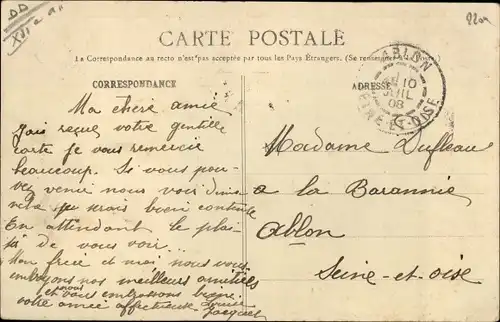 CARTE POSTALE
La Correspondance au recto n'est pas acceptée par tous les Pays Étrangers. (Se renseigner à la Poste)
CORRESPONDANCE
ADRESSE
ABLON
10
JUIL
08
SEINE-ET-OISE
Ma chère amie
Jais reçue votre gentille
carte je vous remercie
beaucoup. Si vous pou-
vez venir nous voir
je serais bien contente
En attendant le plai-
de vous voir...
Mon frère et moi nous vous
envoyons nos meilleurs amitiés
et nous vous embrassons bien
votre amie affectueuse
Jacques
Madame Dufleau
a la Barannie
Ablon
Seine-et-oise